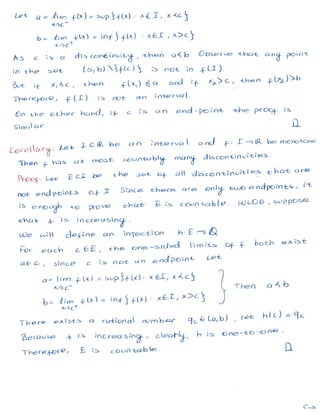 Let a = lim f(x) = sup { f(x) : x ∈ I, x < c }
x→c⁻
b = lim f(x) = inf { f(x) : x ∈ I, x > c }
x→c⁺
As c is a discontinuity, then a < b Observe that any point
in the set (a,b) \ { f(c) } is not in f(I).
But if x₁ < c, then f(x₁) ≤ a and if x₂ > c, then f(x₂) ≥ b
Therefore, f(I) is not an interval.
On the other hand, if c is an end-point the proof is
similar
Corollary Let I ⊂ R be an interval and f: I → R be monotone
Then f has at most countably many discontinuities
Proof: Let E ⊂ I be the set of all discontinuities that are
not endpoints of I Since there are only two endpoints, it
is enough to prove that E is countable. WLOG, suppose
that f is increasing.
We will define an injection h: E → Q
For each c ∈ E, the one-sided limits of f both exist
at c, since c is not an endpoint Let
a = lim f(x) = sup { f(x) : x ∈ I, x < c }
x→c⁻
Then a < b
b = lim f(x) = inf { f(x) : x ∈ I, x > c }
x→c⁺
There exists a rational number q_c ∈ (a,b), let h(c) = q_c
Because f is increasing, clearly, h is one-to-one.
Therefore, E is countable.